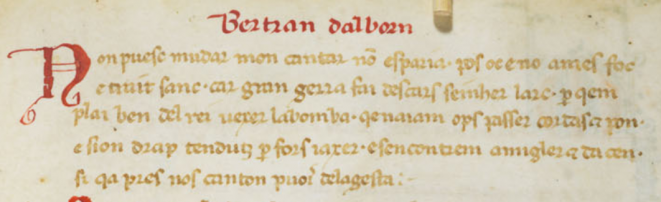 Bertran dalborn
Non puesc mudar mon cantar nō esparia· pos oc e no a mes foc
e trait sanc· car gran gerra fai descars seinher larc· p qem
plai ben del rei vezer la bomba· qe naiam ops passer cordas a pon·
e sion drap tendutz p fors iazer· e sencontrem a miglers a dazen·
si qa pres nos canton puoi de la gesta:-